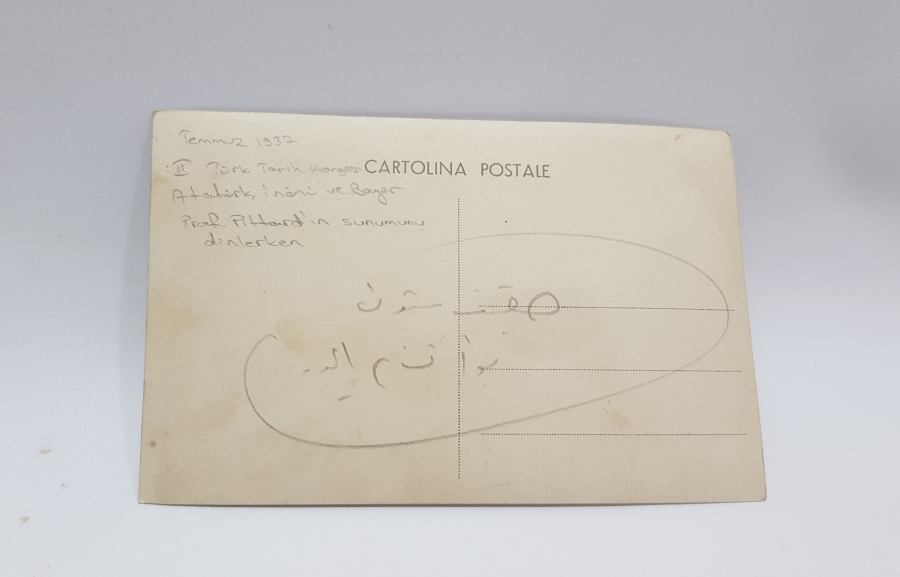 Temmuz 1937
II. Türk Tarih Kongresi
CARTOLINA POSTALE
Atatürk, İnönü ve Bayar
Prof. Pittard'ın sunumunu
dinlerken
ستون